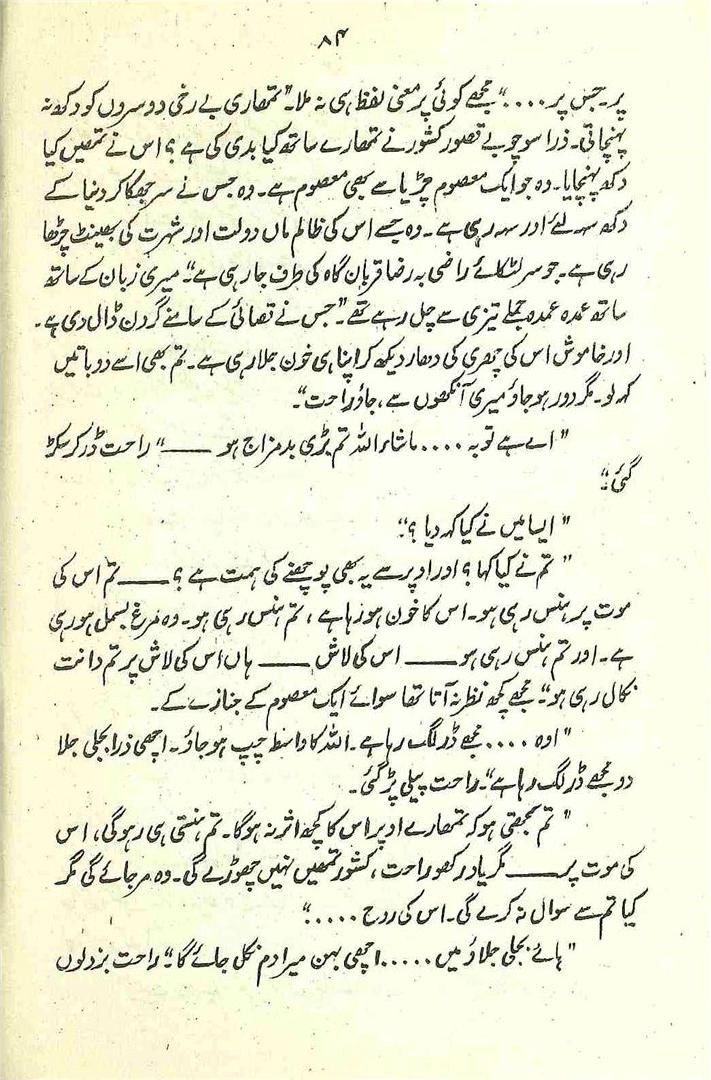 ۸۴
پر۔ جس پر ....“ مجھے کوئی پُر معنی لفظ ہی نہ ملا۔ ”تمھاری بے رخی دوسروں کو دکھ نہ
پہنچاتی۔ ذرا سوچو بے قصور کشور نے تمھارے ساتھ کیا بدی کی ہے؟ اس نے تمھیں کیا
دکھ پہنچایا۔ وہ جو ایک معصوم چڑیا سے بھی معصوم ہے۔ وہ جس نے سر جھکا کر دنیا کے
دکھ سہہ لئے اور سہہ رہی ہے۔ وہ جسے اس کی ظالم ماں دولت اور شہرت کی بھینٹ چڑھا
رہی ہے۔ جو سر لٹکائے راضی بہ رضا قربان گاہ کی طرف جا رہی ہے“۔ میری زبان کے ساتھ
ساتھ عمدہ عمدہ جملے تیزی سے چل رہے تھے۔ ”جس نے قصائی کے سامنے گردن ڈال دی ہے۔
اور خاموش اس کی چھری کی دھار دیکھ کر اپنا ہی خون جلا رہی ہے۔ تم بھی اسے دو باتیں
کہہ لو۔ مگر دور ہو جاؤ میری آنکھوں سے، جاؤ راحت“۔
”اے ہے توبہ .... ماشاء اللہ تم بڑی بد مزاج ہو ——“ راحت ڈر کر سکڑ
گئی۔“
”ایسا میں نے کیا کہہ دیا؟“۔
”تم نے کیا کہا؟ اور اوپر سے یہ بھی پوچھنے کی ہمت ہے؟ —— تم اس کی
موت پر ہنس رہی ہو۔ اس کا خون ہو رہا ہے، تم ہنس رہی ہو۔ وہ مرغ بسمل ہو رہی
ہے۔ اور تم ہنس رہی ہو —— اس کی لاش —— ہاں اس کی لاش پر تم دانت
نکال رہی ہو“۔ مجھے کچھ نظر نہ آتا تھا سوائے ایک معصوم کے جنازے کے۔
”اوہ .... مجھے ڈر لگ رہا ہے۔ اللہ کا واسطہ چپ ہو جاؤ۔ اچھی ذرا بجلی جلا
دو مجھے ڈر لگ رہا ہے“۔ راحت پیلی پڑ گئی۔
”تم سمجھتی ہو کہ تمھارے اوپر اس کا کچھ اثر نہ ہو گا۔ تم ہنستی ہی رہو گی، اس
کی موت پر —— مگر یاد رکھو راحت، کشور تمھیں نہیں چھوڑے گی۔ وہ مر جائے گی مگر
کیا تم سے سوال نہ کرے گی۔ اس کی روح ....“
”ہائے بجلی جلاؤ میں ..... اچھی بہن میرا دم نکل جائے گا“۔ راحت بزدلوں